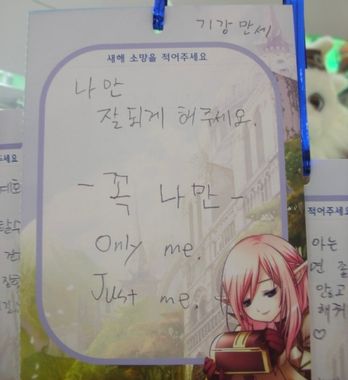 기강 만세
새해 소망을 적어주세요
나만
잘 되게 해주세요.
- 꼭 나만 -
Only me.
Just me.
세요
적어주세요
아는
면 좋
않고
해줘
♡